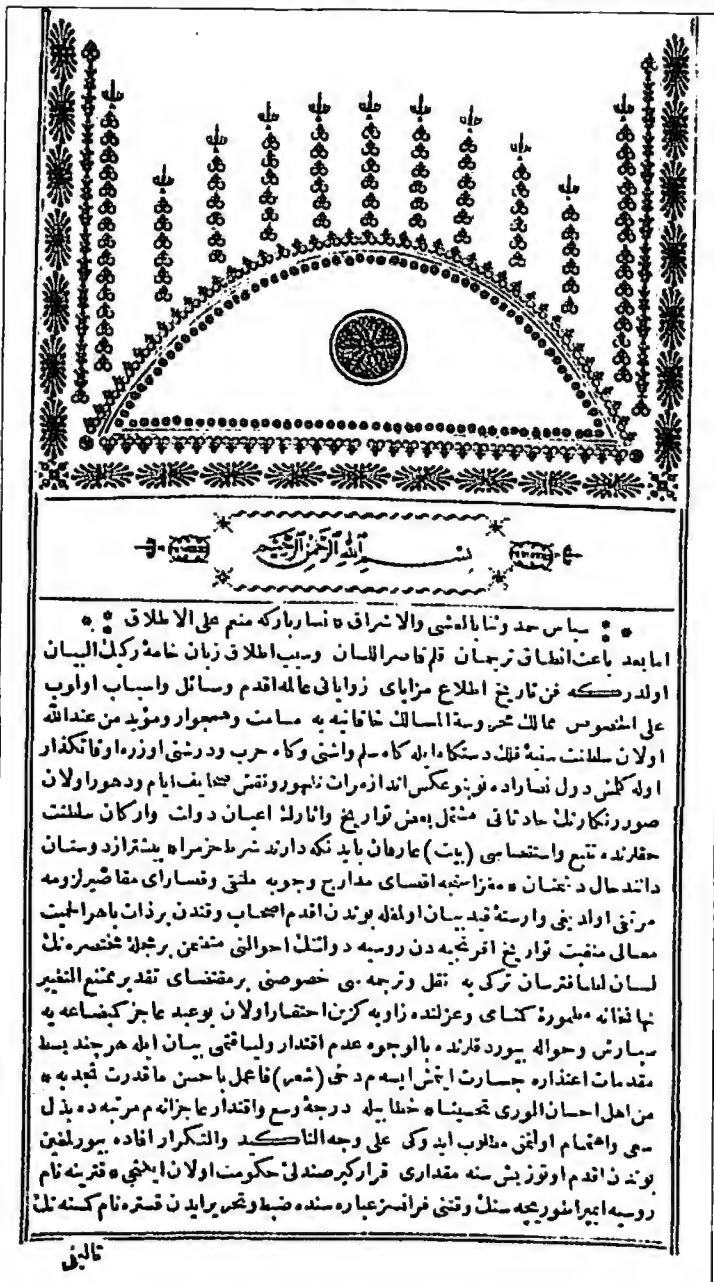 بسم الله الرحمن الرحيم
سپاس حمد وثنا بالعشى والاشراق * نسار بارگه منعم على الاطلاق
اما بعد باعث انطاق ترجمان قلم قاصر اللسان وسبب اطلاق زبان خامهٔ ركيك البيان
اولدركه فن تاريخ اطلاع مزاياى زواياى عالمه اقدم وسائل واسباب اولوب
على الخصوص ممالك محروسة المسالك خاقانيه به مسامت وهمجوار ومؤيد من عندالله
اولان سلطنت سنيهٔ فلك دستكاه ايله كاه سلم واشتى وكاه حرب ودرشتى اوزره اوقاتكذار
اوله كلمش دول نصاراده نوبنو عكس اندازۀ مرات ظهور ونقش صحايف ايام ودهور اولان
صور رنكارنك حادثاتى مشتمل بعض تواريخ واثارك اعيان دولت واركان سلطنت
حقلرنده تتبع واستقصاسى (بيت) عارفان بايد نكه دارند شرط حزم را * پيشتر از دوستان
دانند حال دشمنان * مغزاسنجه اقصاى مدارج وجوبه ملتقى وقصاراى مقاصير لزومه
مرتقى اولديغى وارستهٔ قيد بيان اولمغله بوندن اقدم اصحاب وقتدن بر ذات باهر الحميت
معالى منقبت تواريخ افرنجيه دن روسيه دولتنك احوالنى متضمن بر مجلهٔ مختصره نك
لسان لطافترسان تركى به نقل وترجمه سى خصوصنى بر مقتضاى تقدير ممتنع التغيير
نهانخانه مطمورهٔ كمناى وعزلتده زاويه كزين احتقار اولان بو عبد عاجز كمبضاعه يه
سپارش وحواله بيوردقلرنده بالوجوه عدم اقتدار ولياقتمى بيان ايله هر چند بسط
مقدمات اعتذاره جسارت ايتمش ايسه م دخى (شعر) فاعمل باحسن ما قدرت تجد به *
من اهل احسان الورى تحسينا * خطابيله درجهٔ وسع واقتدار عاجزانه م مرتبه ده بذل
سعى واهتمام اولنمق مطلوب ايدوكى على وجه التاكيد والتكرار افاده بيورلمغين
بوندن اقدم اوتوز بش سنه مقدارى قراركير صندلئ حكومت اولان ايكنجى * قترينه نام
روسيه ايمپراطوريچه سنك وقتنى فرانسز عباره سنده ضبط وتحرير ايدن قستره نام كمسنه نك
تاليفى